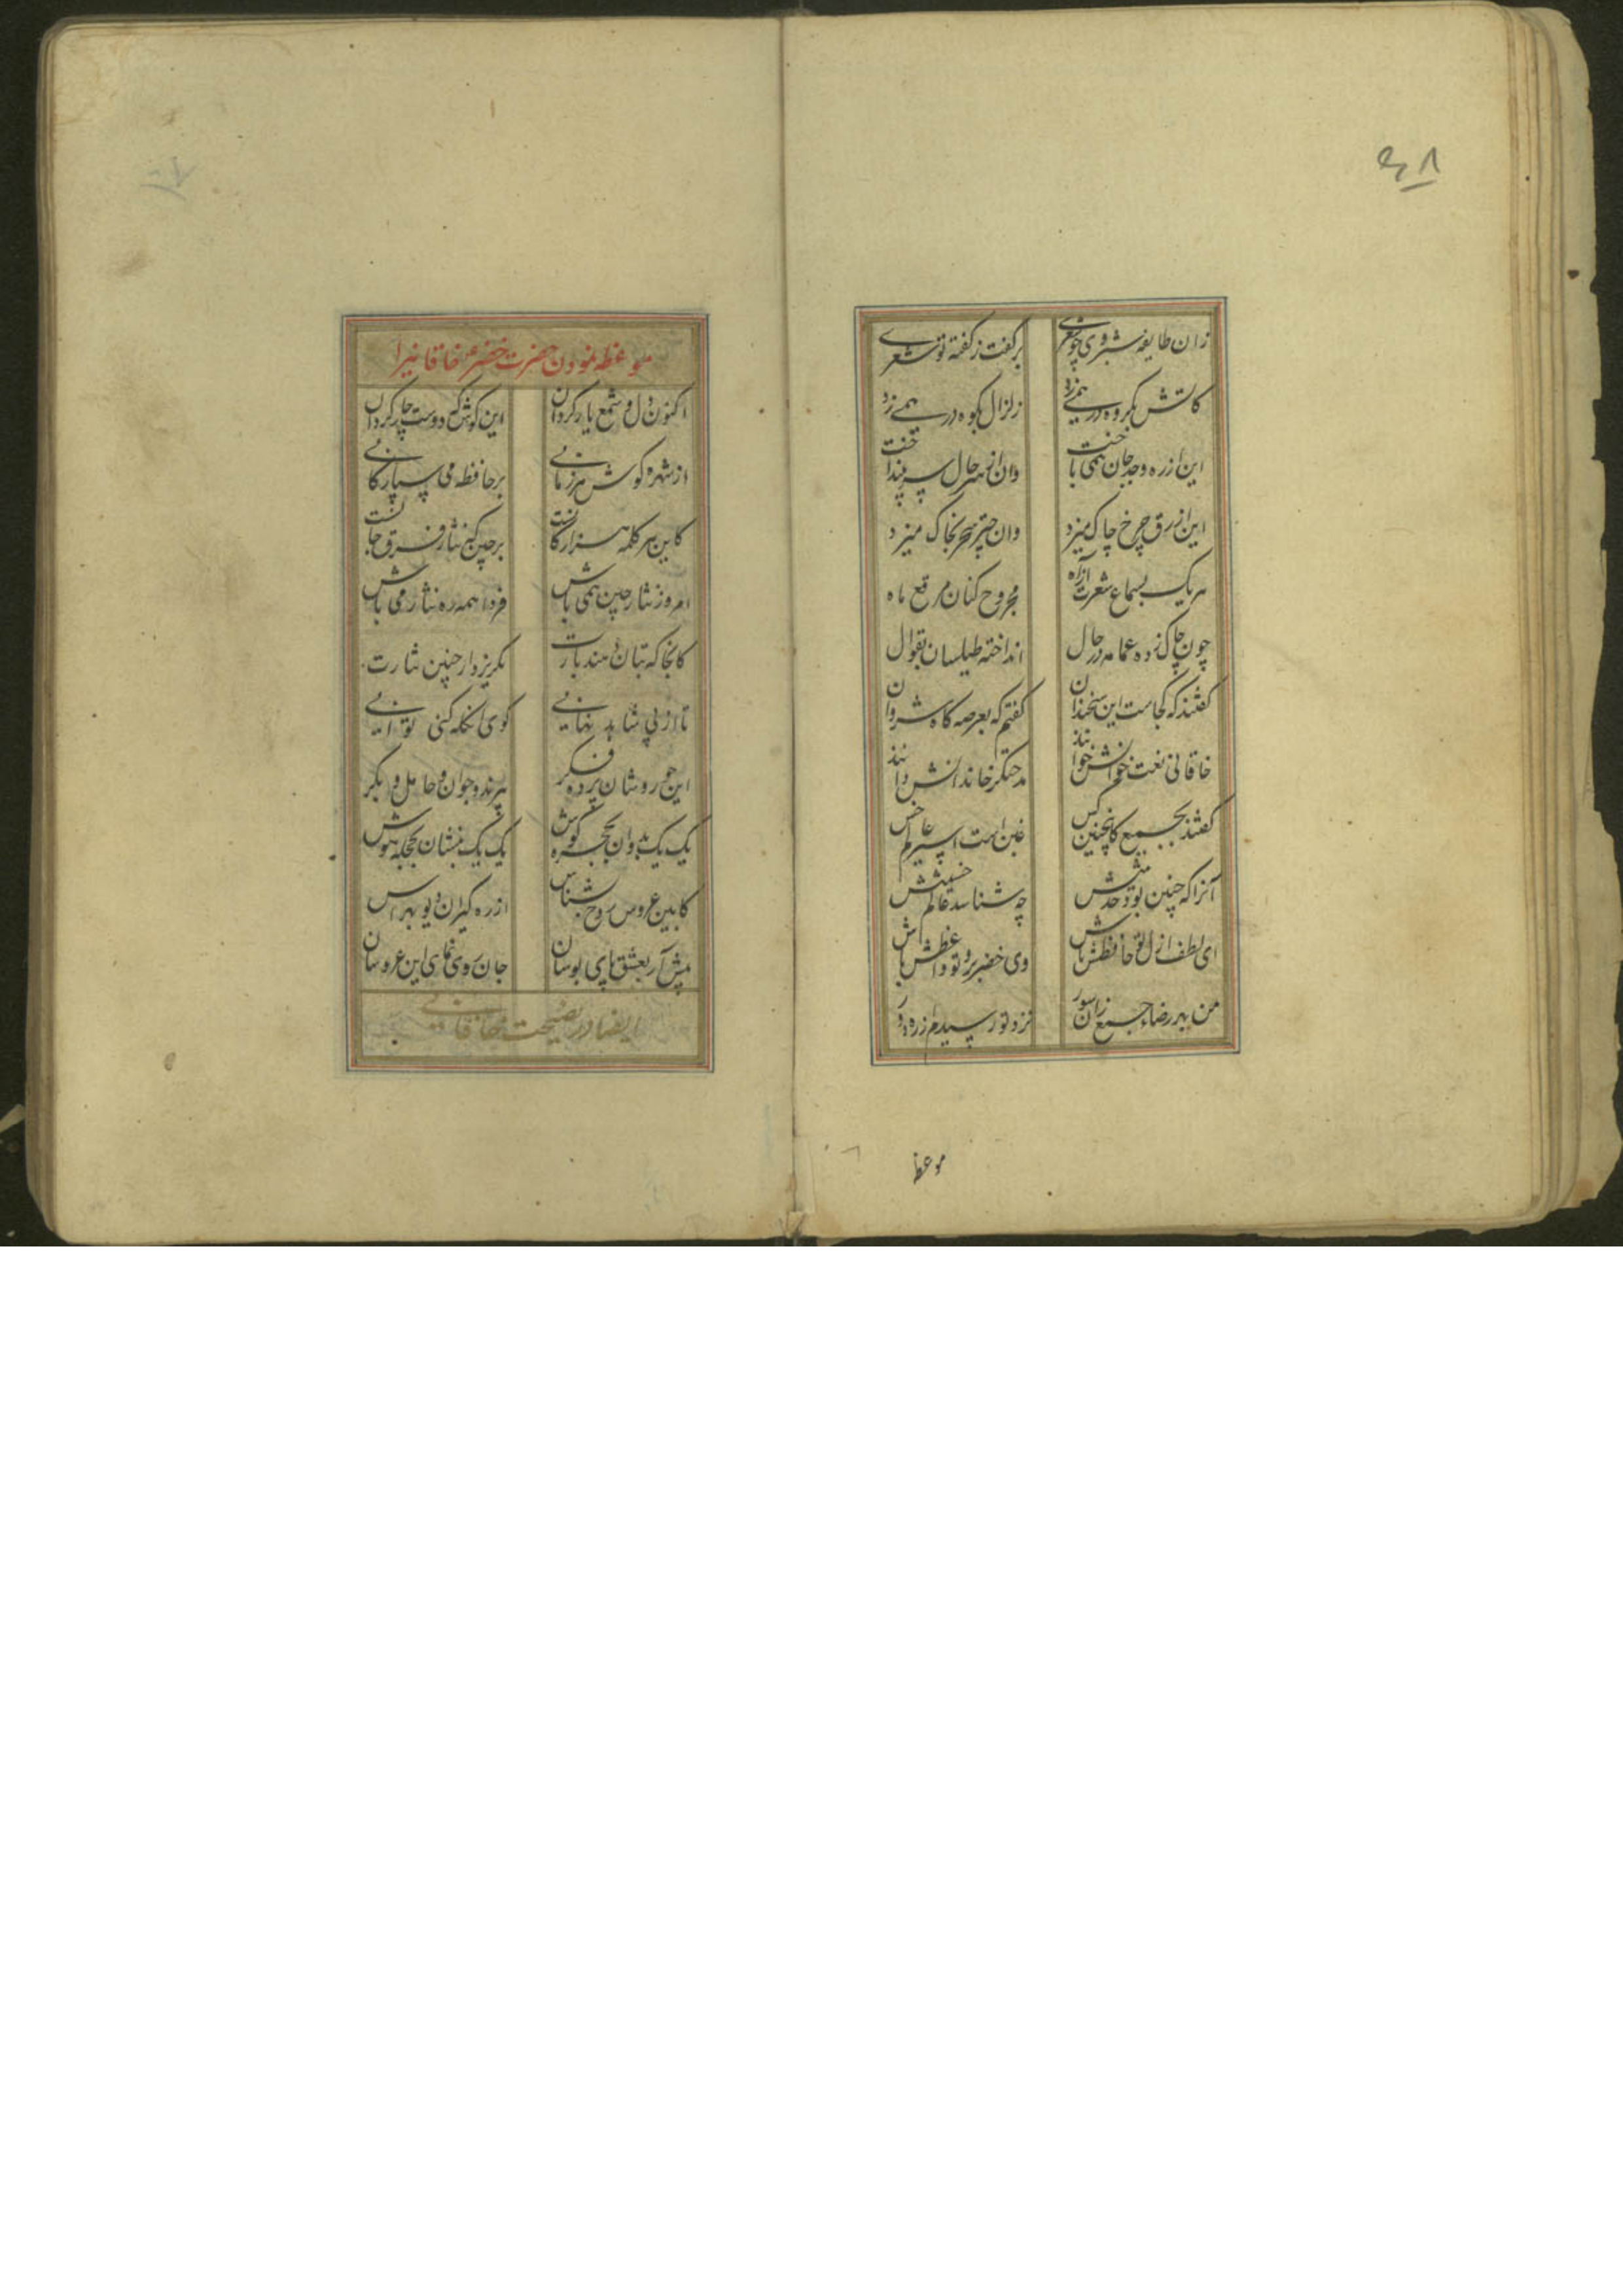 زان طایفه شبروی چو شعری
برگفت ز گفته تو شعری
کاتش بگروه در همی زد
زلزال بکوه در همی زد
این از ره وجد جان همی باخت
وان از سر حال سر بینداخت
این ازرق چرخ چاک میزد
وان چتر سحر بخاک میزد
هر یک بسماع شعرت از راه
مجروح کنان مرقع ماه
چون چاک زده عمامه در حال
انداخته طیلسان بقوال
گفتند که کجاست این سخندان
گفتم که بعرصه گاه شروان
خاقانی نعت خوانش خوانند
مدحتگر خاندانش دانند
گفتند بجمع کاینچنین کس
غبن است اسیر عالم خس
آنرا که چنین بود حدیثش
چه شناسد عالم خبیثش
ای لطف ازل تو حافظش باش
وی خضر برو تو واعظش باش
من بهر رضاء جمع زان سور
نزد تو رسیدم از ره دور
موعظه
موعظه نمودن حضرت خضر خاقانیرا
اکنون دل و شمع یار گردان
این گوش که دوست چار گردان
از شهره گوش هر زمانی
بر حافظه می سپار کانی
کابین هر کلمه هزار کانست
برچین که نثار فرق جانست
امروز نثار چین همی باش
فردا همه ره نثار می باش
کانجا که بتان دهند بارت
نگریزد از چنین نثارت
تا از پی شاهد نهانی
گوی انگله کنی توانی
این حور وشان پرده فکر
پیرند و جوان و حامل و بکر
یک یک بدوان بحجره گوش
یک یک بنشان بحجله هوش
کابین عروس روح بشناس
از ره گیران دیو بهراس
پیش آر بعشق پای بوسان
جان روی نمای این عروسان
ایضا در نصیحت خاقانی